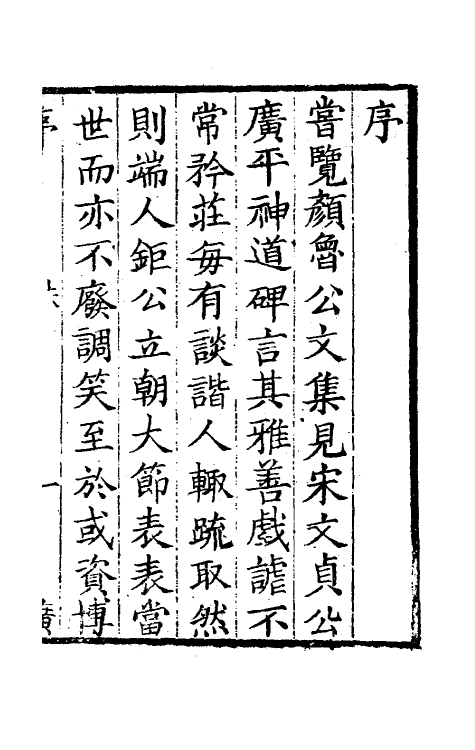 序
嘗覽顏魯公文集見宋文貞公
廣平神道碑言其雅善戲謔不
常矜莊每有談諧人輙䟽取然
則端人鉅公立朝大節表表當
世而亦不廢調笑至於或資博
序
一